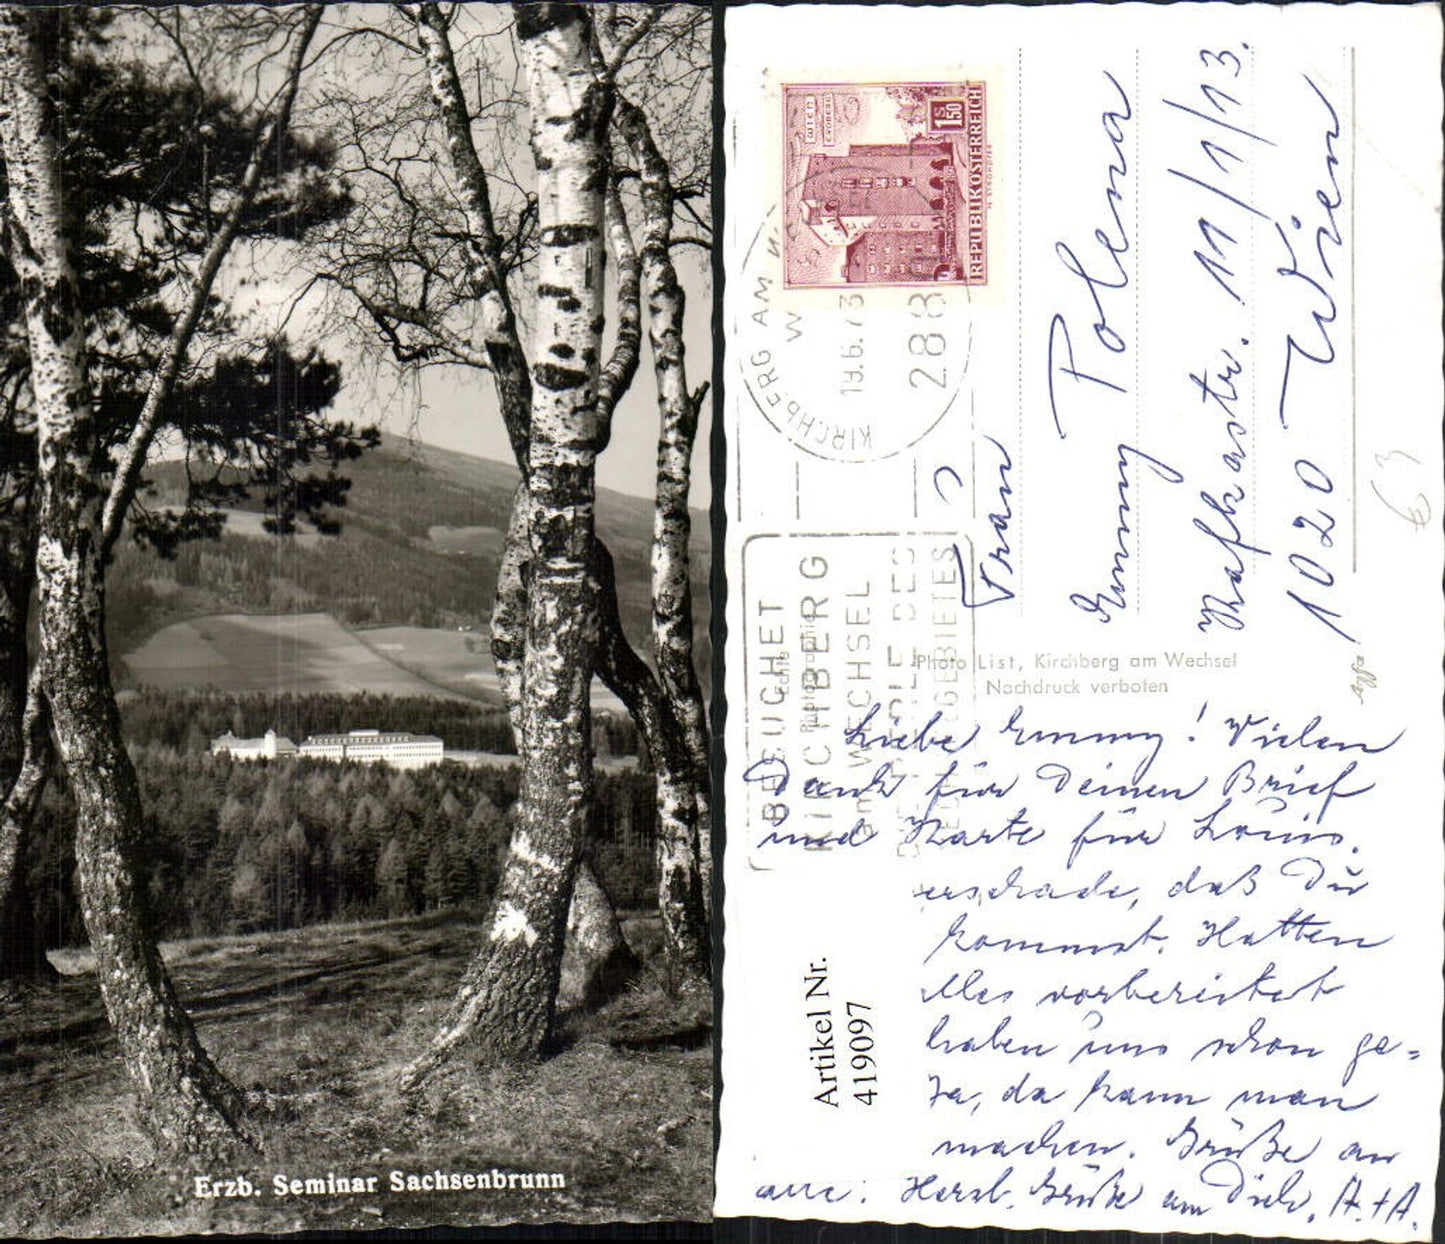 Erzb. Seminar Sachsenbrunn
WIEN
ERDBERG
1S
1.50
REPUBLIK ÖSTERREICH
KIRCHBERG AM W
19.6.73
288
BESUCHET
KIRCHBERG
am WECHSEL
Echte
Photographie
Frau
Emmy Polena
Kafkastr. 11/11/13.
1020 Wien
€ 3
Photo List, Kirchberg am Wechsel
Nachdruck verboten
Artikel Nr.
419097
Liebe Emmy! Vielen
Dank für Deinen Brief
und Karte für Louis.
schade, daß Du
kommst. Hatten
alles vorbereitet
haben uns schon ge=
Ja, da kann man
machen. Grüße an
alle. Herzl. Grüße an Dich, A.+A.